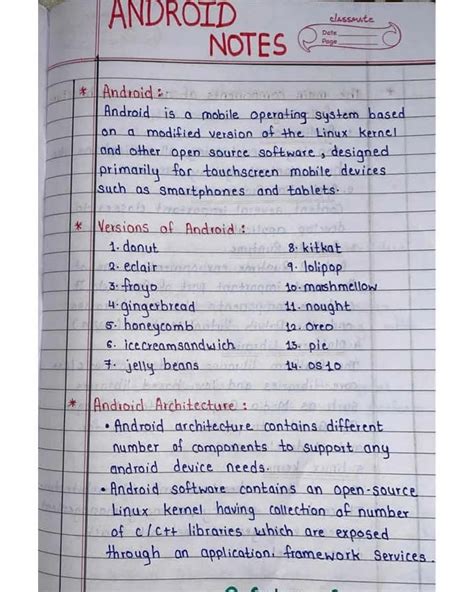 ANDROID
NOTES
classmate
Date
Page
* Android :
Android is a mobile operating system based
on a modified version of the Linux kernel
and other open source software, designed
primarily for touchscreen mobile devices
such as smartphones and tablets.
* Versions of Android :
1. donut
2. eclair
3. froyo
4. gingerbread
5. honeycomb
6. icecreamsandwich
7. jelly beans
8. kitkat
9. lolipop
10. marshmellow
11. nought
12. oreo
13. pie
14. OS 10
* Android Architecture :
• Android architecture contains different
number of components to support any
android device needs.
• Android software contains an open-source
Linux kernel having collection of number
of c/c++ libraries which are exposed
through an application framework services.